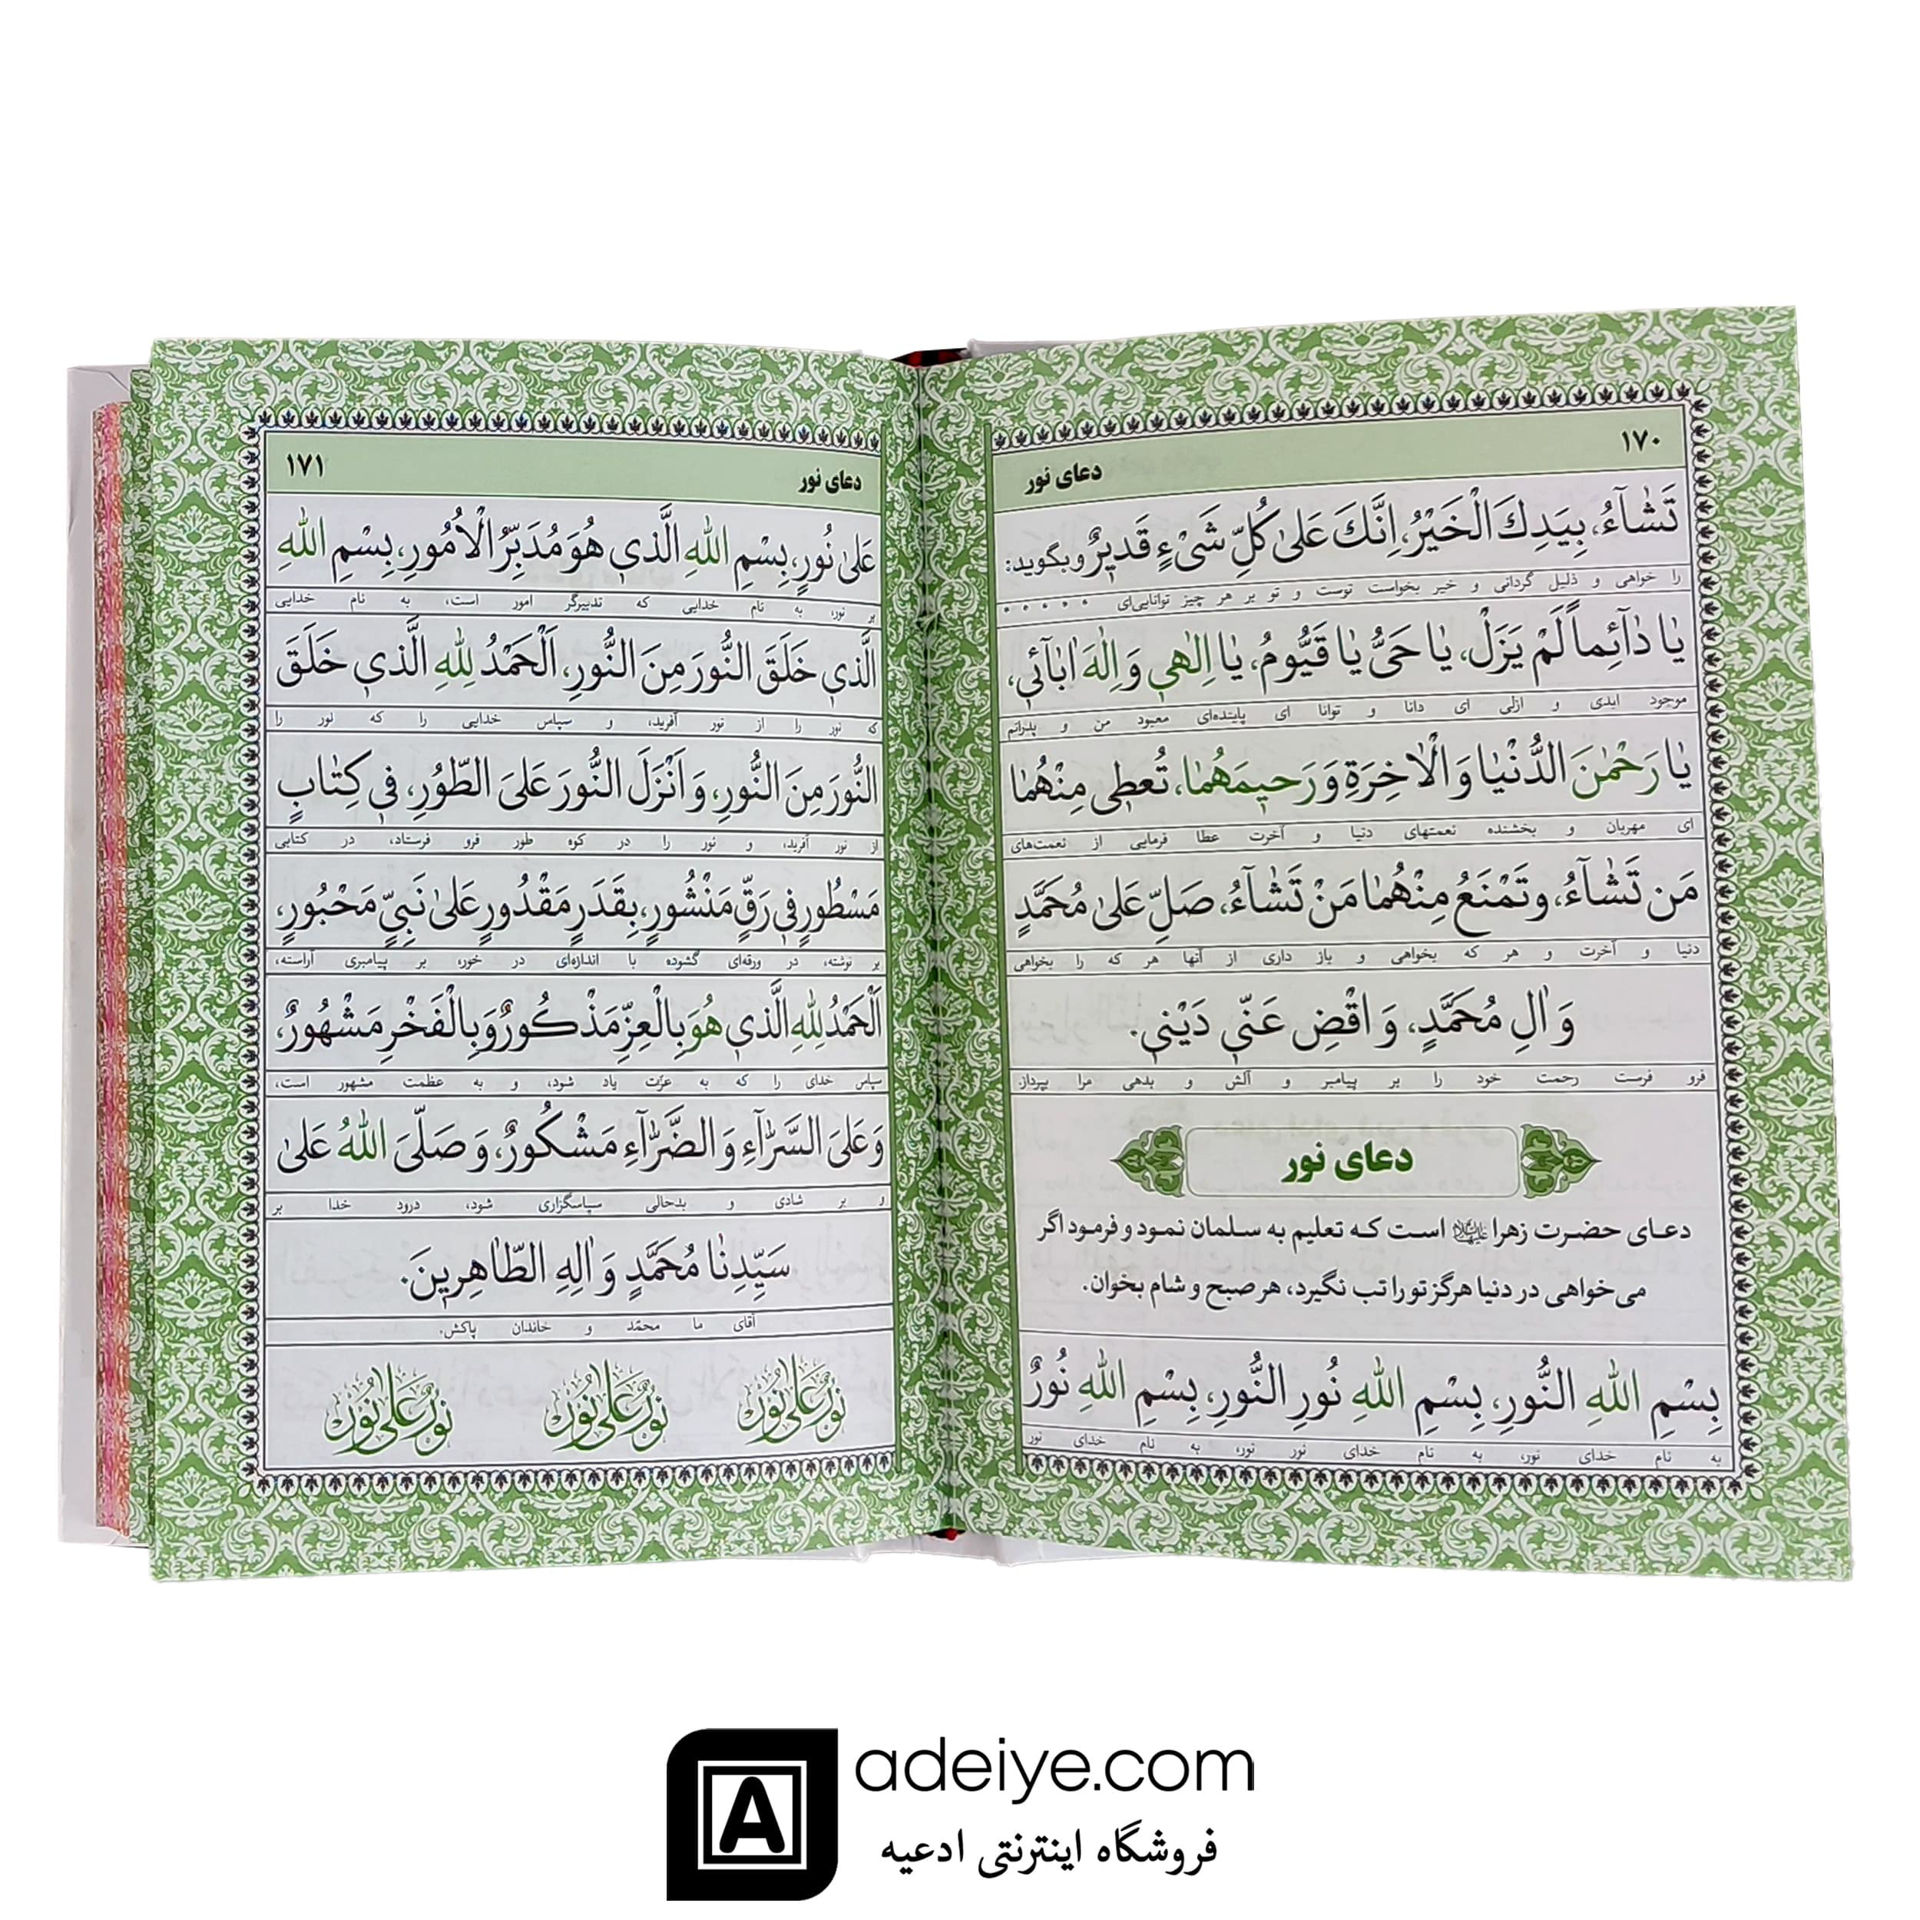 ۱۷۰
دعای نور
تَشٰآءُ، بِیَدِكَ الْخَیْرُ، اِنَّكَ عَلىٰ كُلِّ شَیْءٍ قَدیرٌ وبگوید:
را خواهی و ذلیل گردانی و خیر بخواست توست و تو بر هر چیز توانایی‌ای * * * * *
یٰا دٰآئِماً لَمْ یَزَلْ، یٰا حَیُّ یٰا قَیُّومُ، یٰا اِلٰهی وَ اِلٰهَ اٰبٰآئی،
موجود ابدی و ازلی ای دانا و توانا ای پاینده‌ای معبود من و پدرانم
یٰا رَحْمٰنَ الدُّنْیٰا وَ الْاٰخِرَةِ وَ رَحیمَهُمٰا، تُعطی مِنْهُمٰا
ای مهربان و بخشنده نعمتهای دنیا و آخرت عطا فرمایی از نعمت‌های
مَن تَشٰآءُ، وتَمْنَعُ مِنْهُمٰا مَنْ تَشٰآءُ، صَلِّ عَلىٰ مُحَمَّدٍ
دنیا و آخرت و هر که بخواهی و باز داری از آنها هر که را بخواهی
وَ اٰلِ مُحَمَّدٍ، وَ اقْضِ عَنّی دَیْنی.
فرو فرست رحمت خود را بر پیامبر و آلش و بدهی مرا بپرداز.
دعای نور
دعـای حضـرت زهرا علیهاالسلام اسـت کـه تعلیم به سـلمان نمود و فرمود اگر
می‌خواهی در دنیا هرگز تو را تب نگیرد، هر صبح و شام بخوان.
بِسْمِ اللهِ النُّورِ، بِسْمِ اللهِ نُورِ النُّورِ، بِسْمِ اللهِ نُورٌ
به نام خدای نور، به نام خدای نور نور، به نام خدای نور
دعای نور
۱۷۱
عَلىٰ نُورٍ، بِسْمِ اللهِ الَّذی هُوَ مُدَبِّرُ الْاُمُورِ، بِسْمِ اللهِ
بر نور، به نام خدایی که تدبیرگر امور است، به نام خدایی
الَّذی خَلَقَ النُّورَ مِنَ النُّورِ، اَلْحَمْدُ لِلّٰهِ الَّذی خَلَقَ
که نور را از نور آفرید، و سپاس خدایی را که نور را
النُّورَ مِنَ النُّورِ، وَ اَنْزَلَ النُّورَ عَلَى الطُّورِ، فی كِتٰابٍ
از نور آفرید، و نور را در کوه طور فرو فرستاد، در کتابی
مَسْطُورٍ فی رَقٍّ مَنْشُورٍ، بِقَدَرٍ مَقْدُورٍ عَلىٰ نَبِیٍّ مَحْبُورٍ،
بر نوشته، در ورقه‌ای گشوده با اندازه‌ای در خور، بر پیامبری آراسته،
اَلْحَمْدُ لِلّٰهِ الَّذی هُوَ بِالْعِزِّ مَذْكُورٌ وَ بِالْفَخْرِ مَشْهُورٌ،
سپاس خدای را که به عزّت یاد شود، و به عظمت مشهور است،
وَ عَلَى السَّرّٰآءِ وَ الضَّرّٰآءِ مَشْكُورٌ، وَ صَلَّى اللهُ عَلىٰ
و بر شادی و بدحالی سپاسگزاری شود، درود خدا بر
سَیِّدِنٰا مُحَمَّدٍ وَ اٰلِهِ الطّٰاهِرینَ.
آقای ما محمّد و خاندان پاکش.
نورٌ علی نور نورٌ علی نور نورٌ علی نور
A adeiye.com
فروشگاه اینترنتی ادعیه